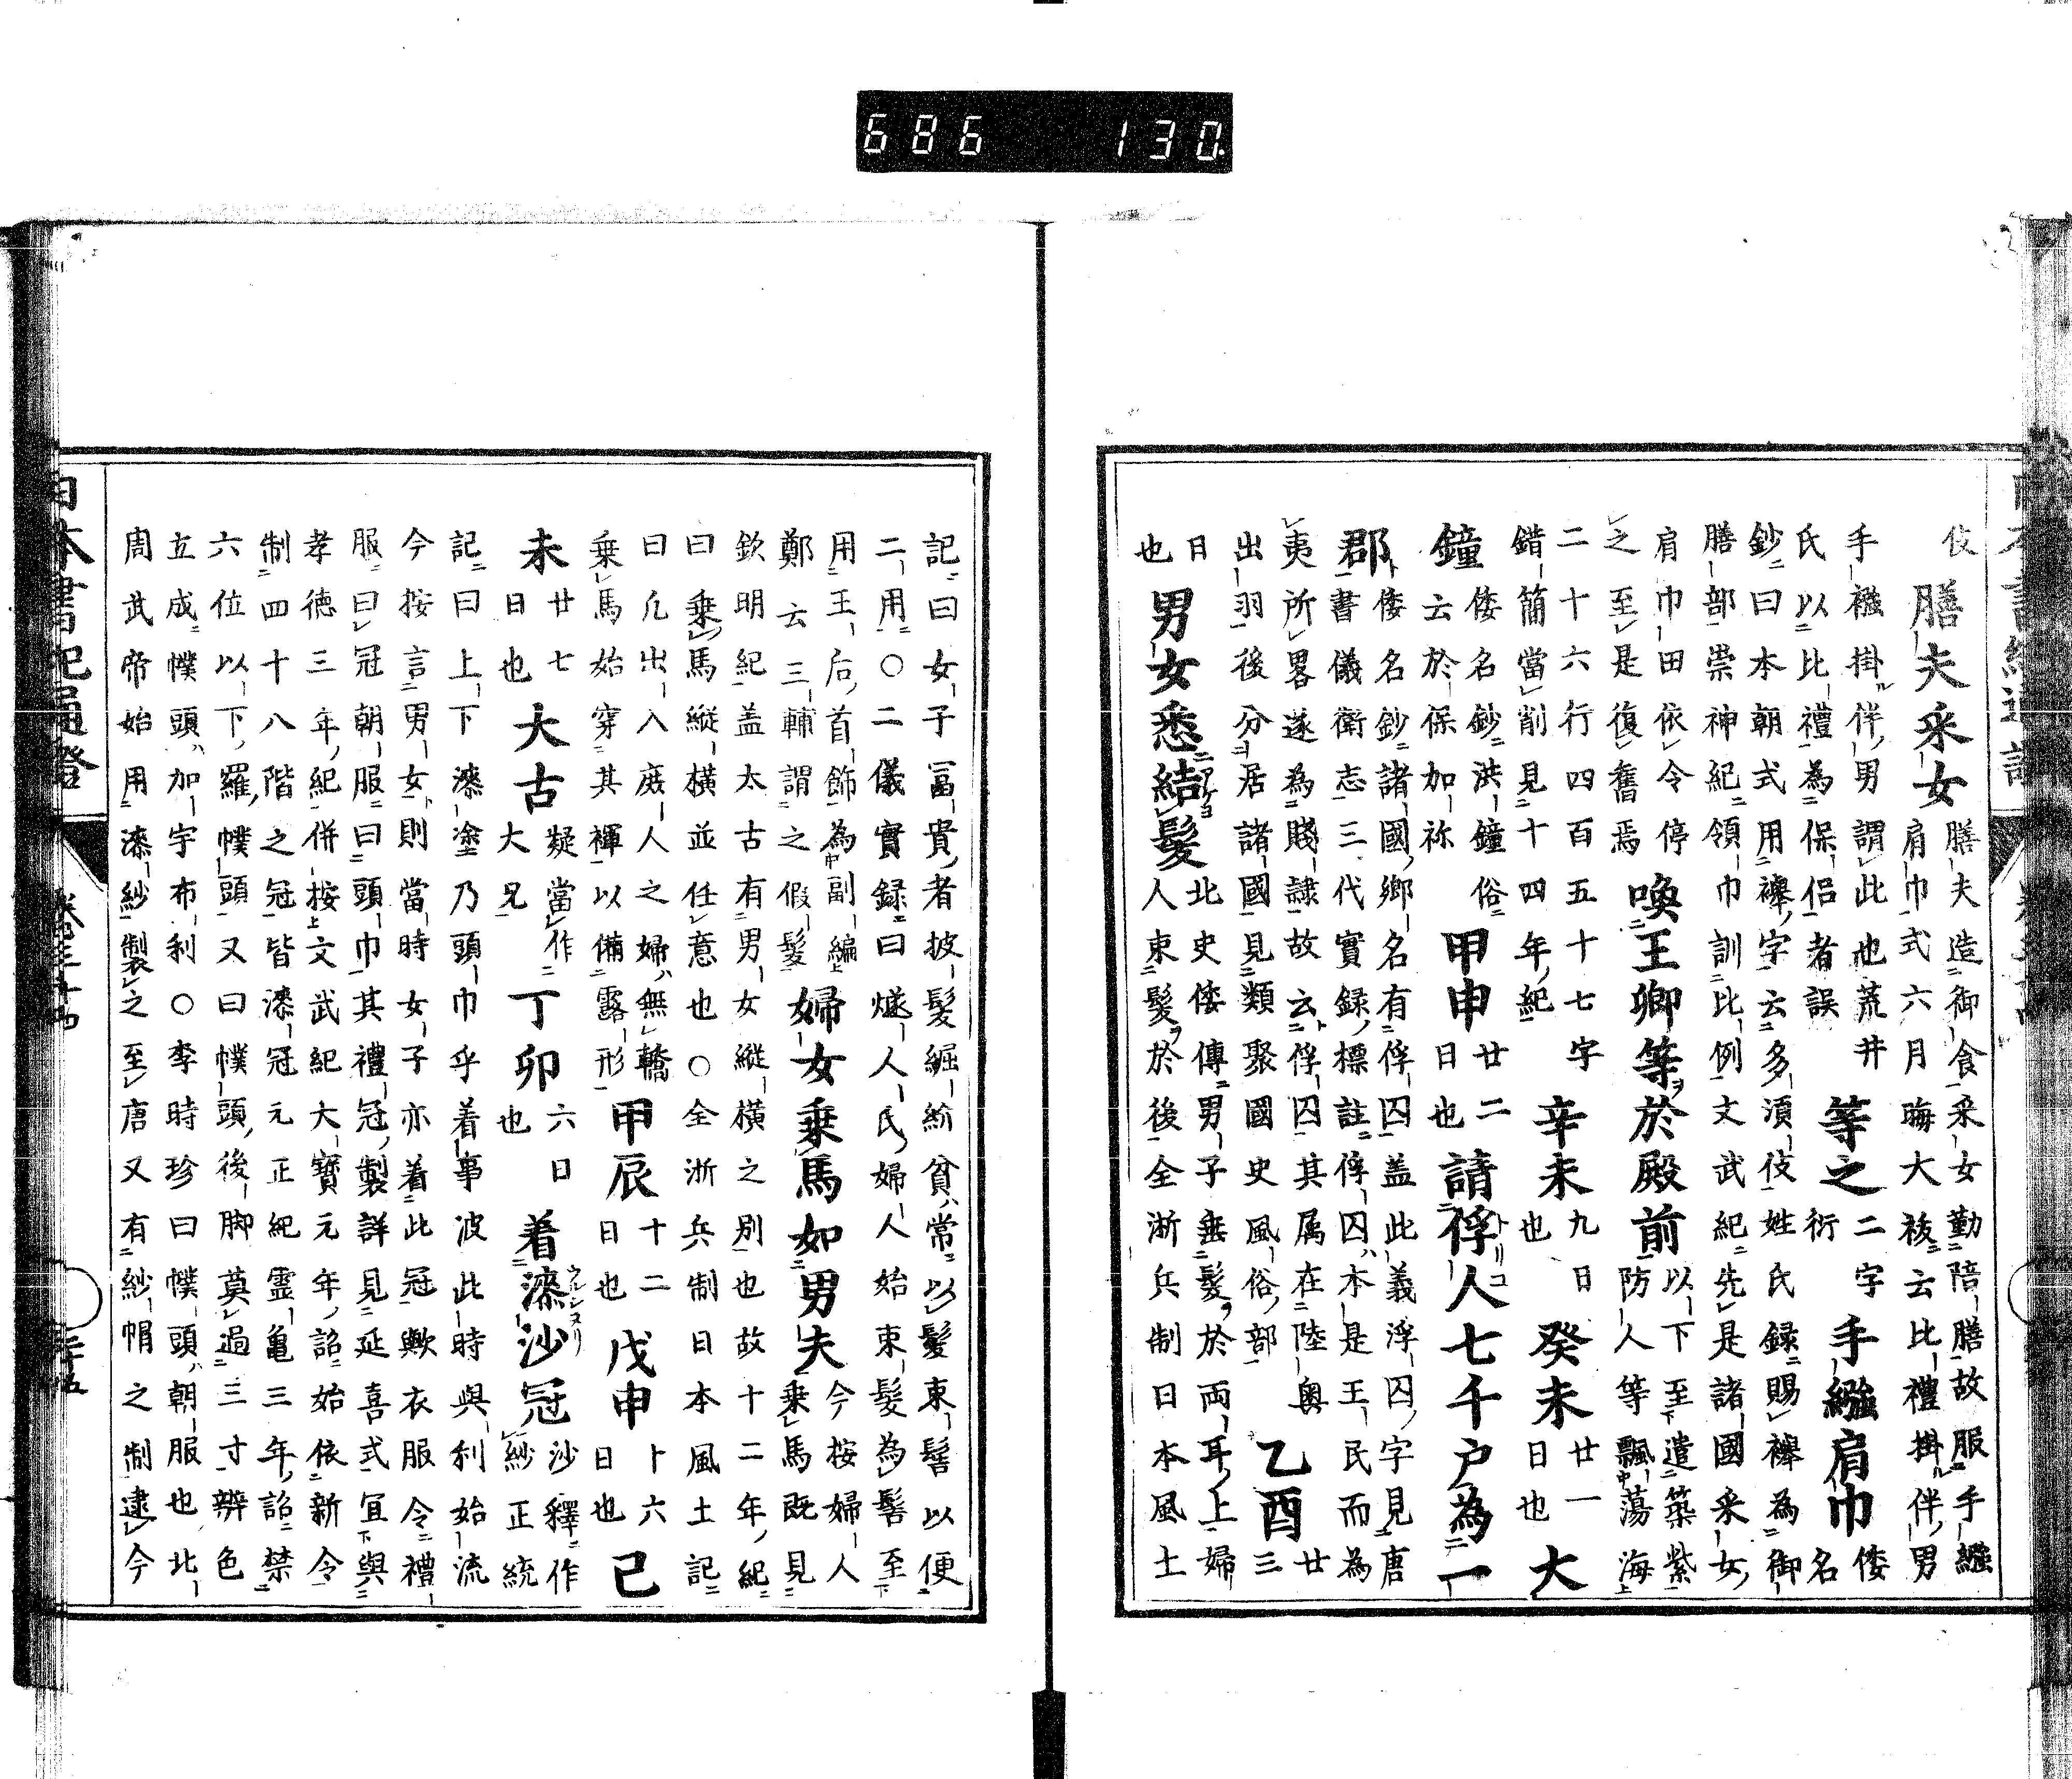 伎
膳夫采女
膳夫造御食采女勤陪膳故服手繦
肩巾式六月晦大祓云比禮掛伴男
手襁掛伴男謂此也荒井
氏以比禮為保侶者誤
等之
二字
衍
手繦肩巾
倭
名
鈔曰本朝式用襷字云多湏伎姓氏録賜襷為御
膳部崇神紀領巾訓比例文武紀先是諸國采女
肩巾田依令停
之至是復舊焉
喚王卿等於殿前
以下至遣築紫
防人等飄蕩海
二十六行四百五十七字
錯簡當削見十四年紀
辛未
九日
也
癸未
廿一
日也
大
鐘
倭名鈔洪鐘俗
云於保加祢
甲申
廿二
日也
請俘人七千户為一
郡
倭名鈔諸國鄉名有俘囚盖此義浮囚字見唐
書儀衛志三代實録標註俘囚本是王民而為
夷所畧遂為賤隷故云俘囚其属在陸奥
出羽後分居諸國見類聚國史風俗部
乙酉
廿
三
日
也
男女悉結髮
北史倭傳男子垂髮於兩耳上婦
人束髮於後全浙兵制日本風土
記曰女子冨貴者披髮綰紒貧常以髮束髻以便
二用○二儀實録曰燧人氏婦人始束髮為髻至
用王后首飾為副編
鄭云三輔謂之假髮
婦女乗馬如男夫
今按婦人
乗馬既見
欽明紀盖太古有男女縦横之別也故十二年紀
曰乗馬縦横並任意也○全浙兵制日本風土記
曰凢出入庭人之婦無轎
乗馬始穿其褌以備露形
甲辰
十二
日也
戊申
十六
日也
己
未
廿七
日也
大古
疑當作
大兄
丁卯
六日
也
着漆沙冠
沙釋作
紗正統
記曰上下漆塗乃頭巾乎着事波此時與利始流
今按言男女則當時女子亦着此冠歟衣服令禮
服曰冠朝服曰頭巾其禮冠製詳見延喜式宜與
孝徳三年紀併按文武紀大寶元年詔始依新令
制四十八階之冠皆漆冠元正紀霊亀三年詔禁
六位以下羅幞頭又曰幞頭後脚莫過三寸辨色
立成幞頭加宇布利○李時珍曰幞頭朝服也北
周武帝始用漆紗製之至唐又有紗帽之制逮今